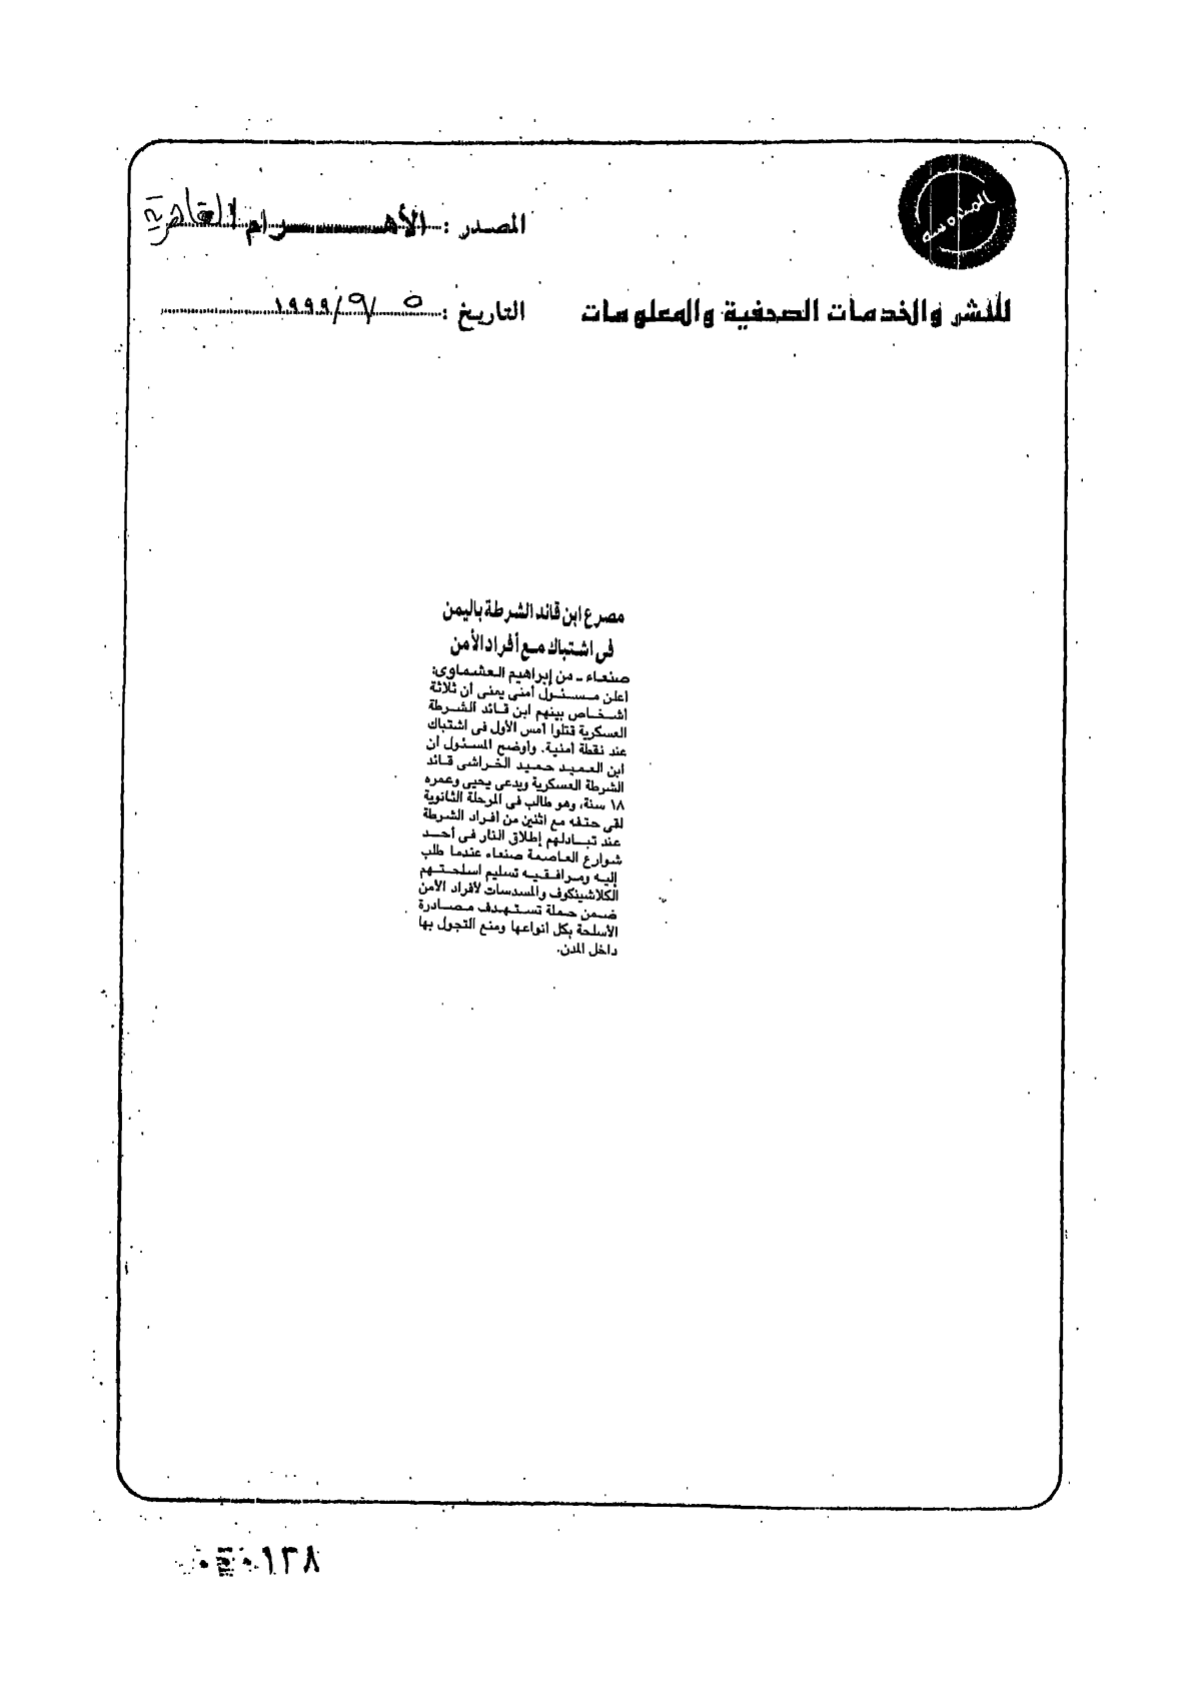 المحروسه
المصدر : الأهـــــرام القاهرية
للنشر والخدمات الصحفية والمعلومات
التاريخ : ٥ /٩/ ١٩٩٩
مصرع ابن قائد الشرطة باليمن
فى اشتباك مع أفراد الأمن
صنعاء ـ من إبراهيم العشماوى:
أعلن مسئول أمنى يمنى أن ثلاثة
أشخاص بينهم ابن قائد الشرطة
العسكرية قتلوا أمس الأول فى اشتباك
عند نقطة أمنية. وأوضح المسئول أن
ابن العميد حميد الخراشى قائد
الشرطة العسكرية ويدعى يحيى وعمره
١٨ سنة، وهو طالب فى المرحلة الثانوية
لقى حتفه مع اثنين من أفراد الشرطة
عند تبادلهم إطلاق النار فى أحد
شوارع العاصمة صنعاء عندما طلب
إليه ومرافقيه تسليم اسلحتهم
الكلاشينكوف والمسدسات لأفراد الأمن
ضمن حملة تستهدف مصادرة
الأسلحة بكل أنواعها ومنع التجول بها
داخل المدن.
١٣٨